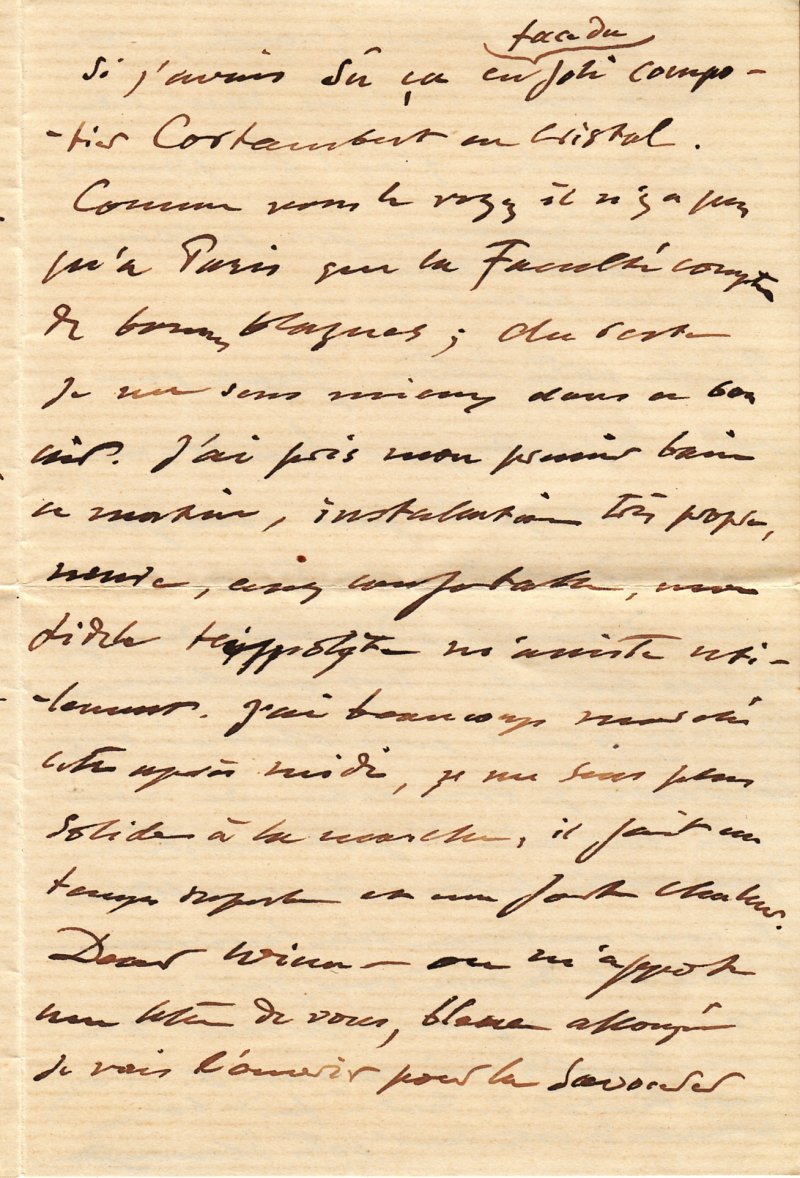 face du
Si j'avais sû ça en joli compo-
-tier Cortambert en cristal.
Comme vous le voyez il n'y a pas
qu'à Paris que la Faculté compte
de bonnes blagues ; du reste
je me sens mieux dans ce bon
air. J'ai pris mon premier bain
ce matin, installation très propre,
neuve, assez confortable, mon
fidèle Hippolyte m'assiste uti-
-lement. J'ai beaucoup marché
cette après midi, je me sens plus
solide à la marche, il fait un
temps superbe et une forte chaleur.
Dear Wina — on m'apporte
une lettre de vous, bleue allongée
je vais l'ouvrir pour la savourer